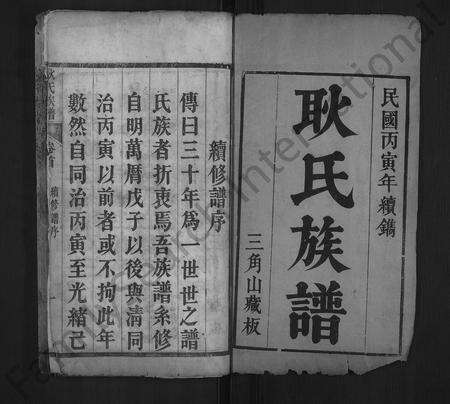 民國丙寅年續鐫
耿氏族譜
三角山藏板
續修譜序
傳曰三十年為一世世之譜
氏族者折衷焉吾族譜系修
自明萬曆戊子以後與清同
治丙寅以前者或不拘此年
數然自同治丙寅至光緒己
耿氏族譜
卷首
續修譜序